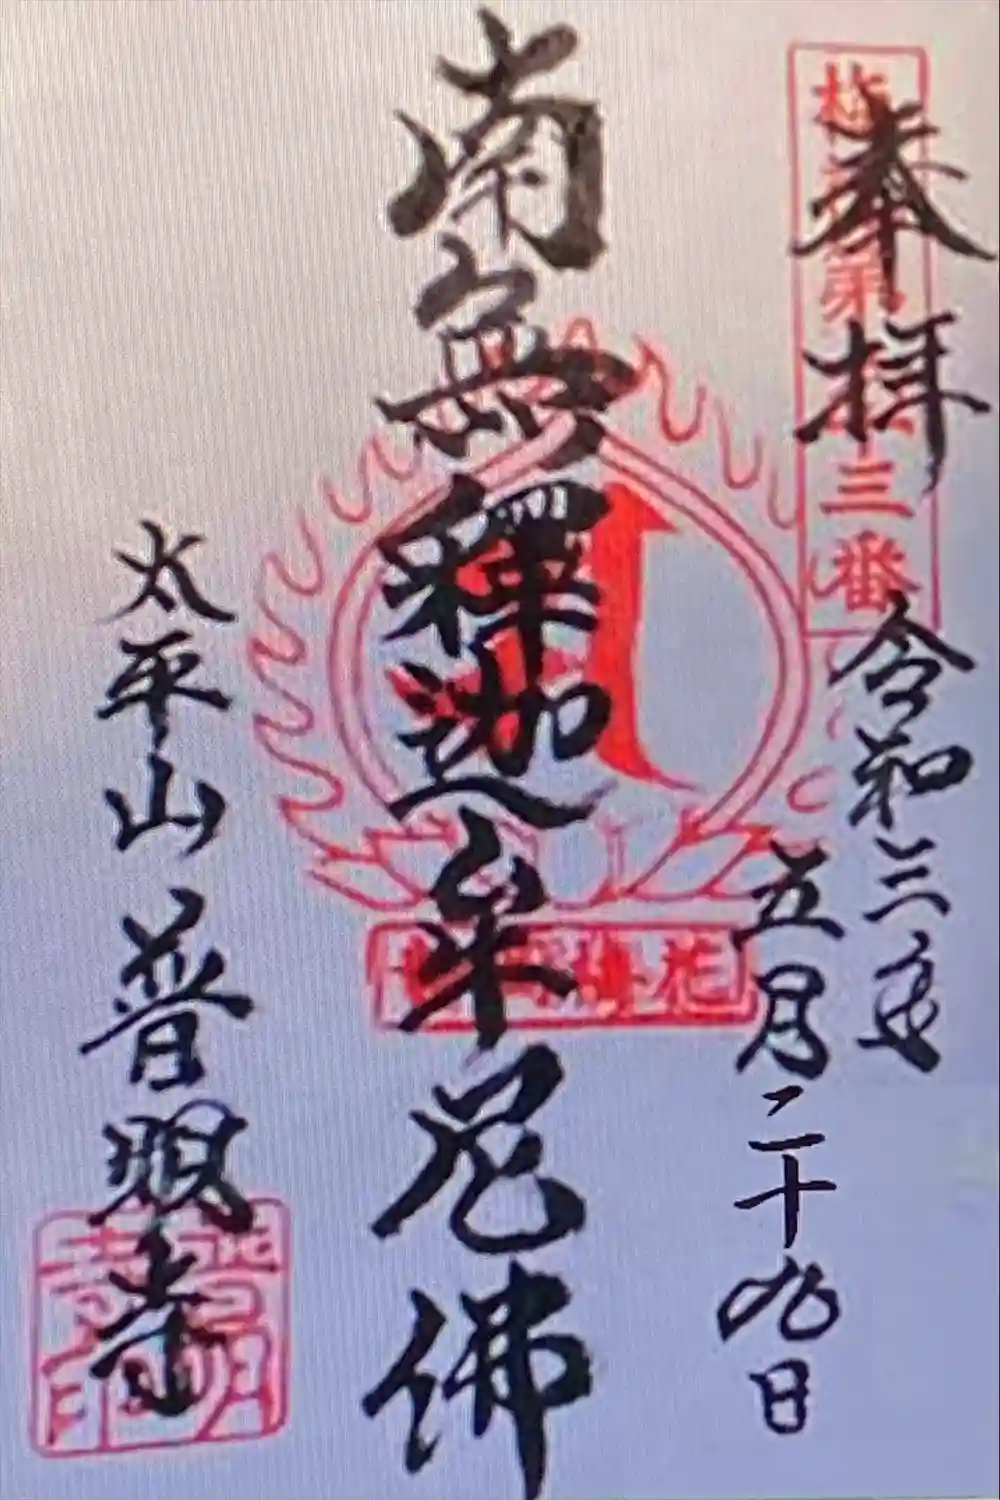 奉拝
令和三年
五月二十九日
南無釋迦牟尼佛
太平山 普明寺